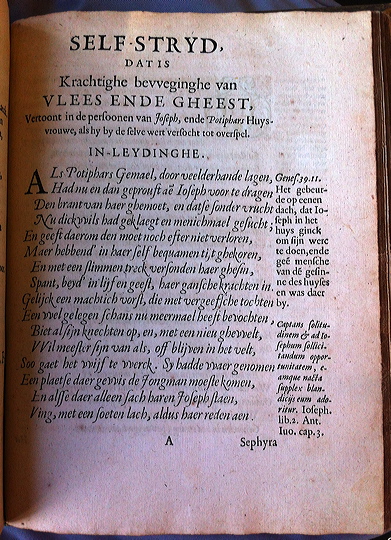 SELF-STRYD,
DAT IS
Krachtighe bevveginghe van
VLEES ENDE GHEEST,
Vertoont in de persoonen van Joseph, ende Potiphars Huys-
vrouwe, als hy by de selve wert versocht tot overspel.
IN-LEYDINGHE.
ALs Potiphars Gemael, door veelderhande lagen,
Had nu en dan geprouft aē Ioseph voor te dragen
Den brant van haer ghemoet, en datse sonder vrucht
Nu dickwils had geklaegt en menichmael gesucht,
En geeft daerom den moet noch efter niet verloren,
Maer hebbend' in haer self bequamen tijt gekoren,
En met een slimmen treck versonden haer ghesin,
Spant, beyd' in lijf en geest, haer gansche krachten in.
Gelijck een machtich vorst, die met vergeefsche tochten
Een wel gelegen schans nu meermael heeft bevochten,
Biet al sijn knechten op, en, met een nieu ghewelt,
Wil meester sijn van als, off blijven in het velt,
Soo gaet het wijf te werck. Sy hadde waer genomen
Een plaetse daer gewis de Jongman moeste komen,
En alsse daer alleen sach haren Joseph staen,
Ving, met een soeten lach, aldus haer reden aen.
Genes. 39. 11.
Het gebeur-
de op eenen
dach, dat Io-
seph in het
huys ginck
om sijn werc
te doen, ende
geē mensche
van dē gesin-
ne des huyses
en was daer
by.
Captans solitu-
dinem & ad Io-
sephum sollici-
tandum oppor-
tunitatem, e-
amque nacta
supplex blan-
dicijs eum ado-
ritur. Ioseph.
lib. 2. Ant.
Iuo. cap. 3.
A
Sephyra